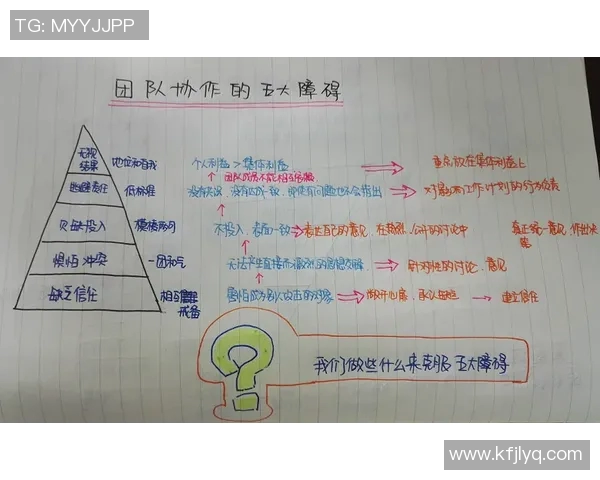 TG: MYYJJPP
团队协作的五大障碍
无视结果 地位和自我 个人利益 > 集体利益 重点放在集体利益上
团队成员不能相互
逃避责任 低标准
欠缺投入 模棱两可 不投入,表面一致 表达自己的意见,在激烈、公开的讨论中 真正统一意见,作出决策
惧怕冲突 一团和气 无法产生直接而激烈的思想交锋 针对性的讨论、意见
缺乏信任 相互戒备 害怕成为别人攻击的对象 敞开心扉,承认缺点 建立信任
我们做些什么来克服五大障碍
www.kfjlyq.com